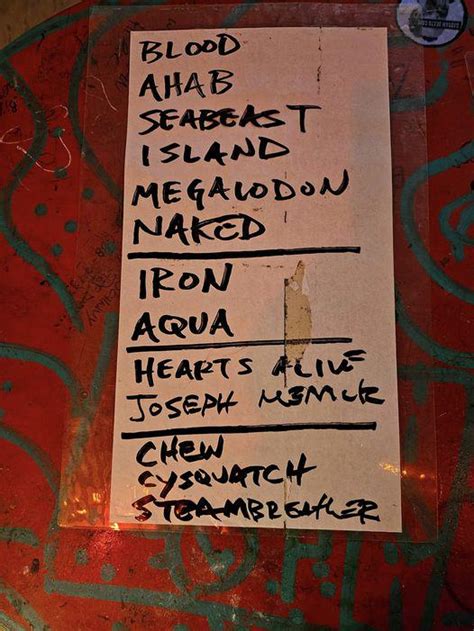 BLOOD
AHAB
SEABEAST
ISLAND
MEGALODON
NAKED
IRON
AQUA
HEARTS ALIVE
JOSEPH MERRICK
CHEW
CYSQUATCH
STEAMBREATHER